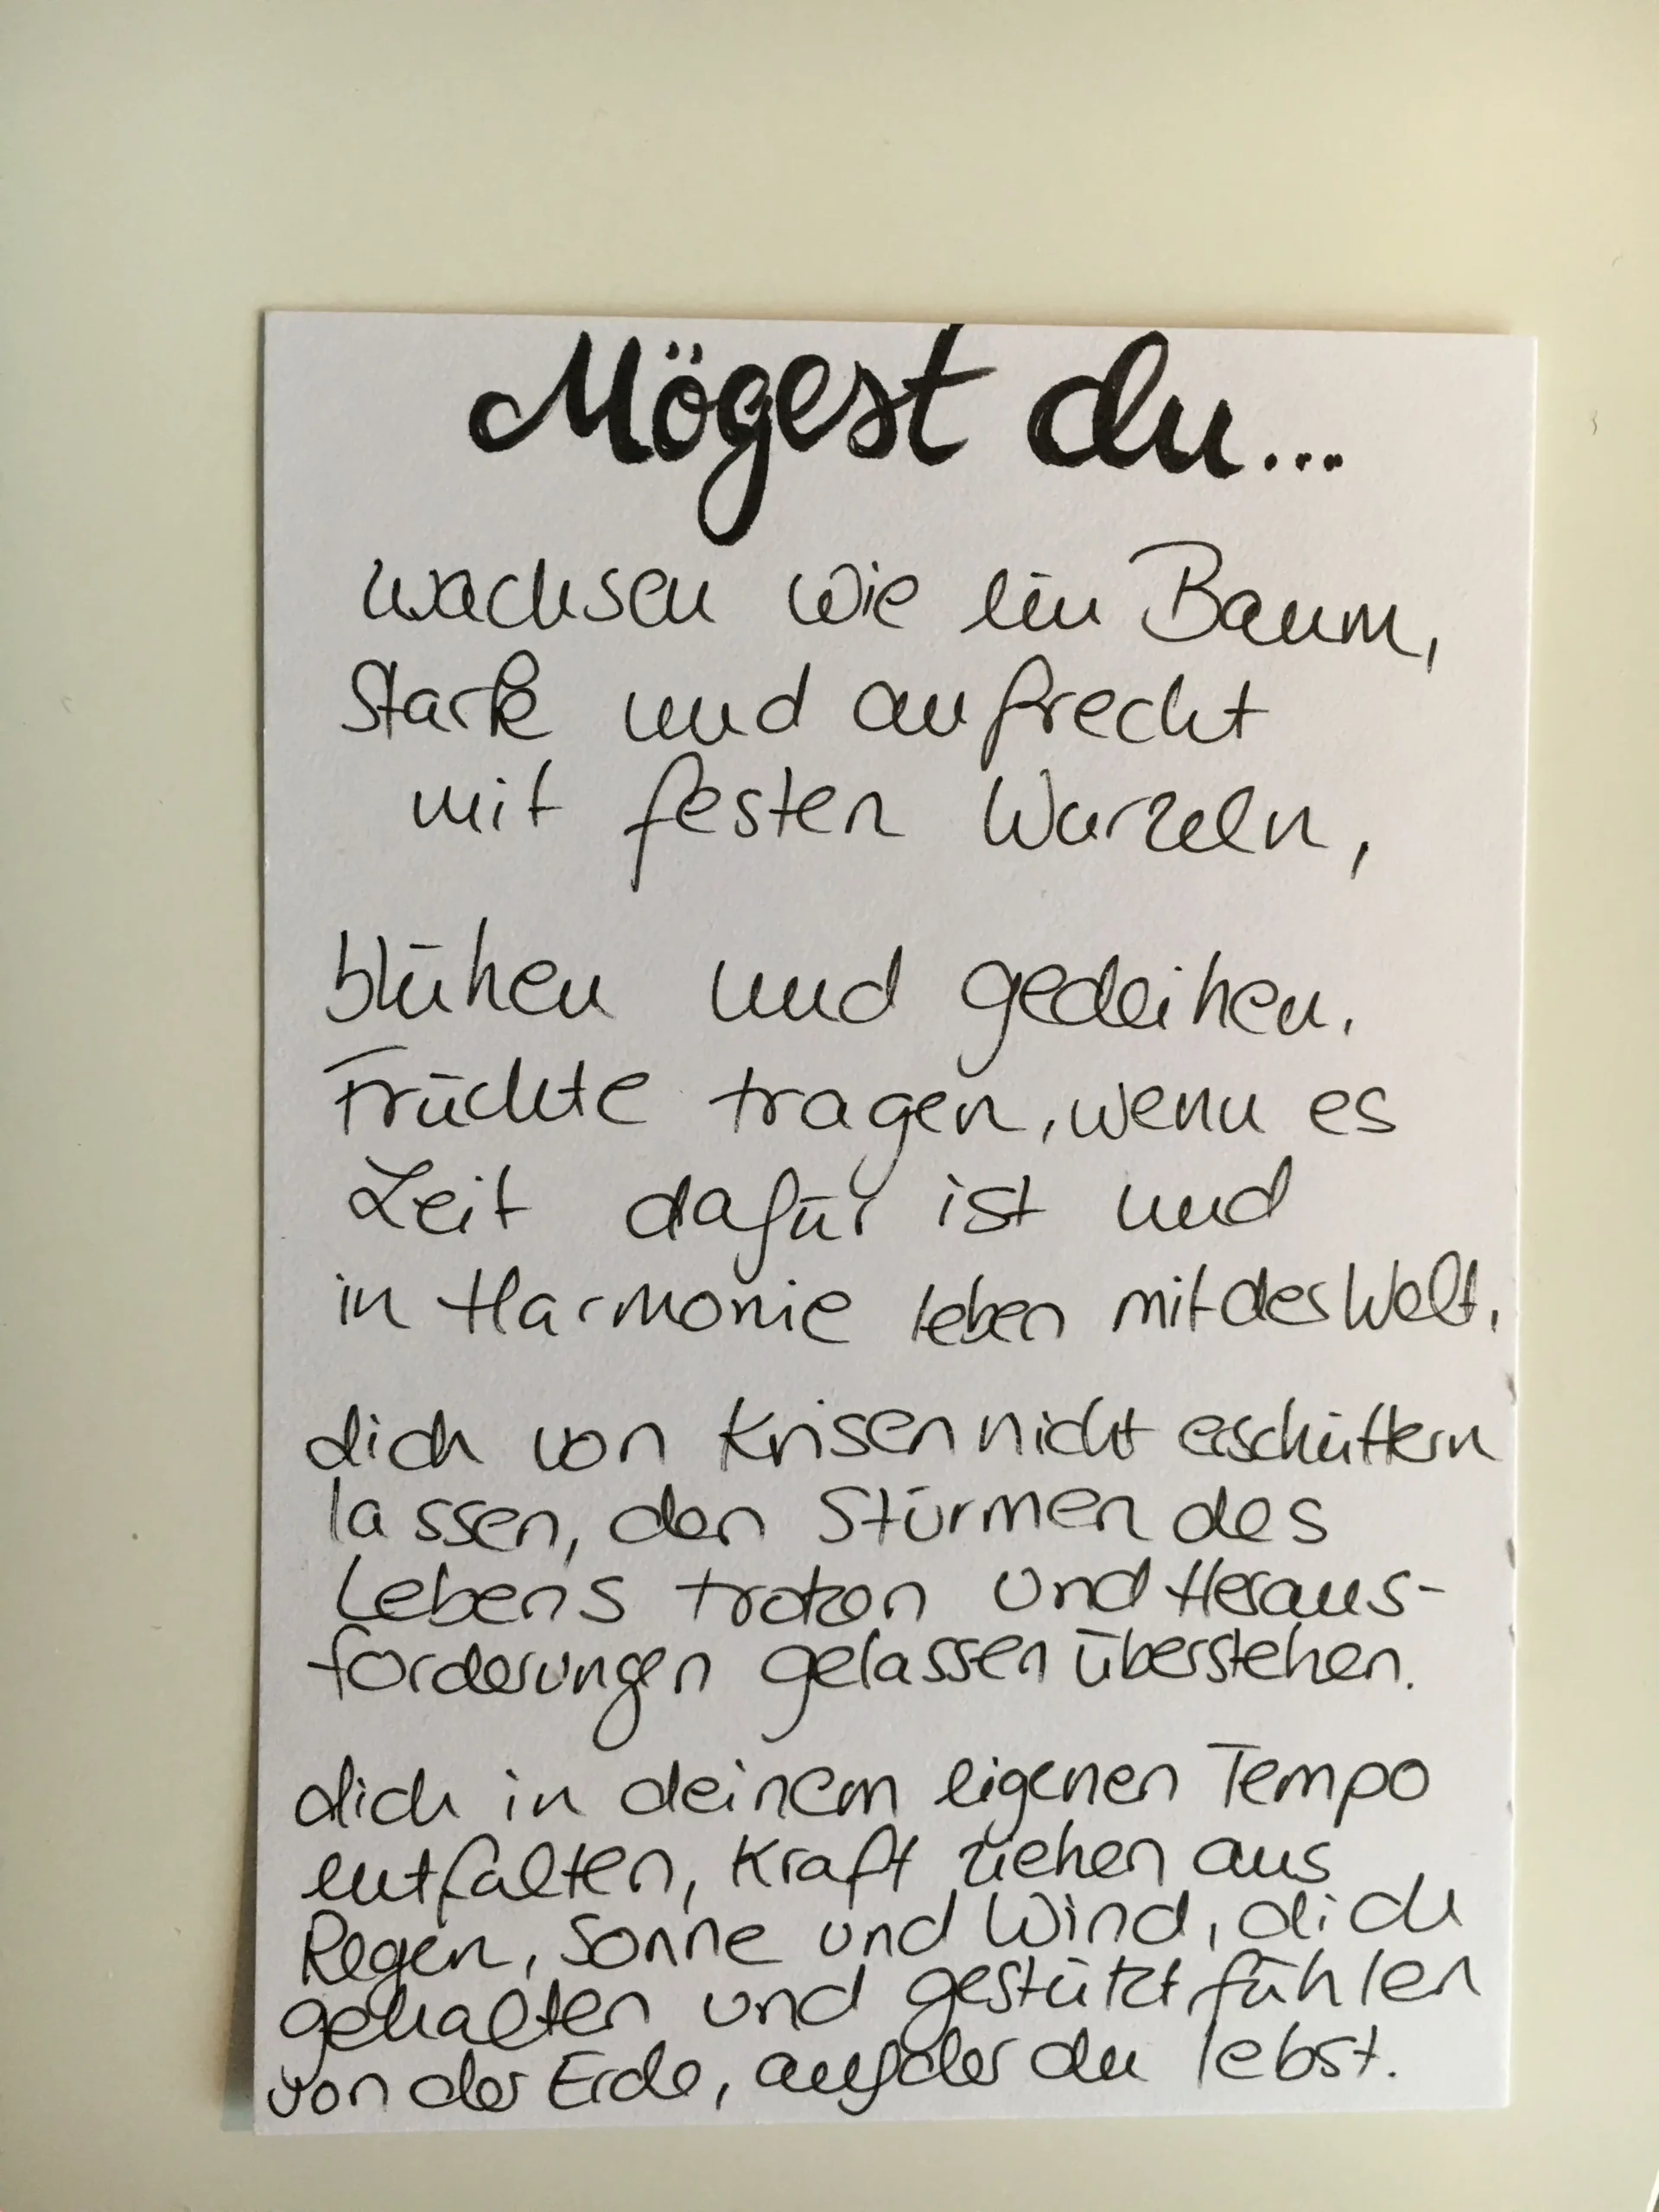 Mögest du...
wachsen wie ein Baum,
Stark und aufrecht
mit festen Wurzeln,
blühen und gedeihen.
Früchte tragen, wenn es
Zeit dafür ist und
in Harmonie leben mit der Welt.
dich von Krisen nicht erschüttern
lassen, den Stürmen des
Lebens trotzen und Heraus-
forderungen gelassen überstehen.
dich in deinem eigenen Tempo
entfalten, Kraft ziehen aus
Regen, Sonne und Wind, dich
gehalten und gestützt fühlen
von der Erde, auf der du lebst.